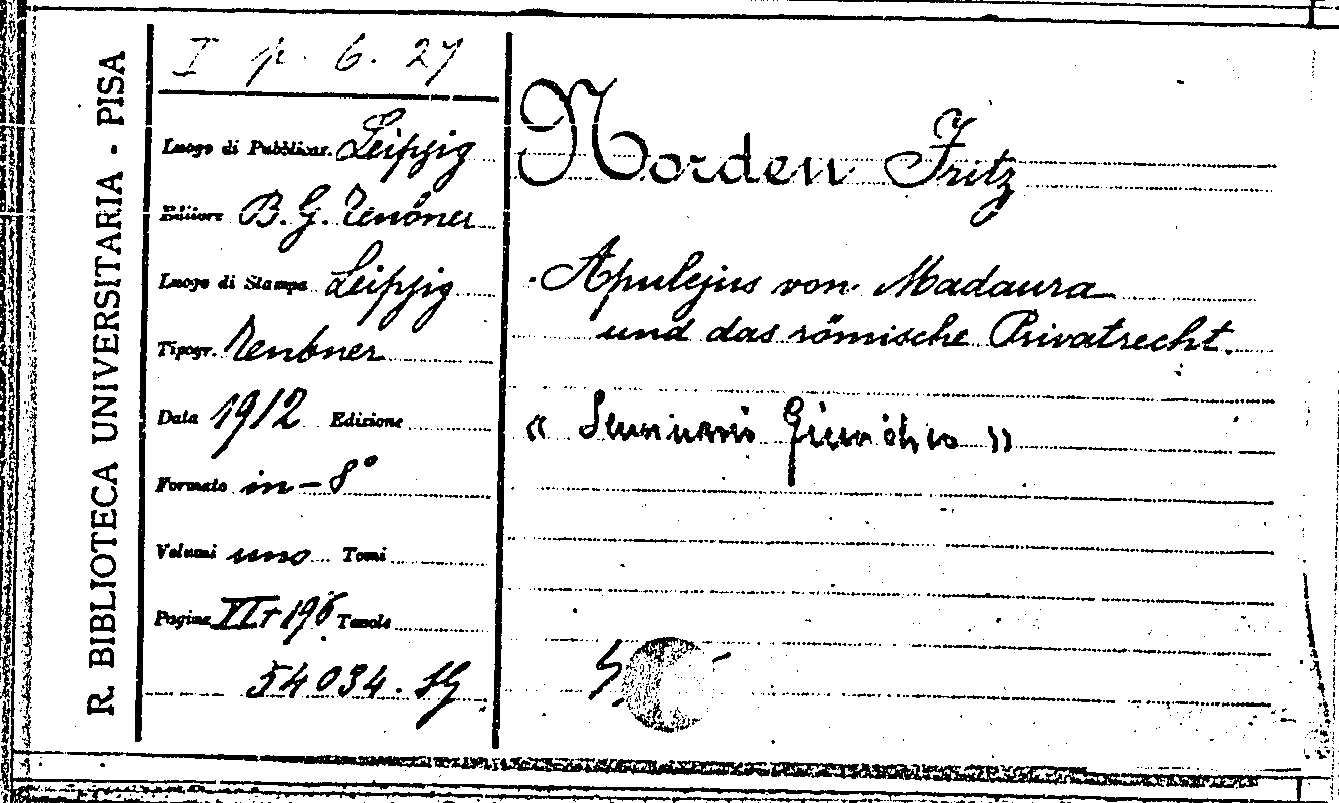 R. BIBLIOTECA UNIVERSITARIA - PISA
I p. 6. 27
Luogo di Pubblicaz. Leipzig
Editore B. G. Teubner
Luogo di Stampa Leipzig
Tipogr. Teubner
Data 1912 Edizione
Formato in-8°
Volumi uno Tomi
Pagine XI+196 Tavole
54034. SG
Norden Fritz
Apulejus von Madaura
und das römische Privatrecht.
« Seminario Giuridico »